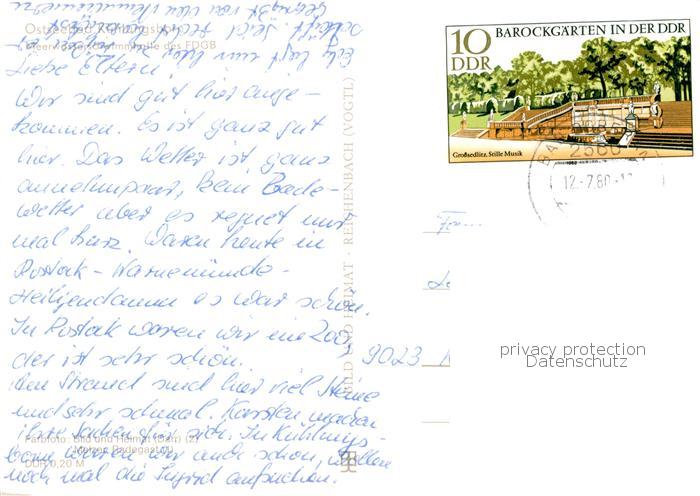 Ostseebad Kühlungsborn
Meerwasserschwimmhalle des FDGB
Liebe Eltern!
Wir sind gut hier ange-
kommen. Es ist ganz gut
hier. Das Wetter ist ganz
annehmbar, kein Bade-
wetter aber es regnet nur
mal kurz. Waren heute in
Rostock - Warnemünde -
Heiligendamm es war schön.
In Rostock waren wir im Zoo,
der ist sehr schön.
Am Strand sind hier viel Steine
und sehr schmal. Karsten machen
ihre Sachen für sich. In Kühlungs-
born waren wir auch schon, wollen
noch mal die Ingrid aufsuchen.
Farbfoto: Bild und Heimat (2)
DDR 0,20 M
BILD UND HEIMAT · REICHENBACH (VOGTL)
10
DDR
BAROCKGÄRTEN IN DER DDR
Großsedlitz, Stille Musik
1980
12.-7.80
9023
privacy protection
Datenschutz